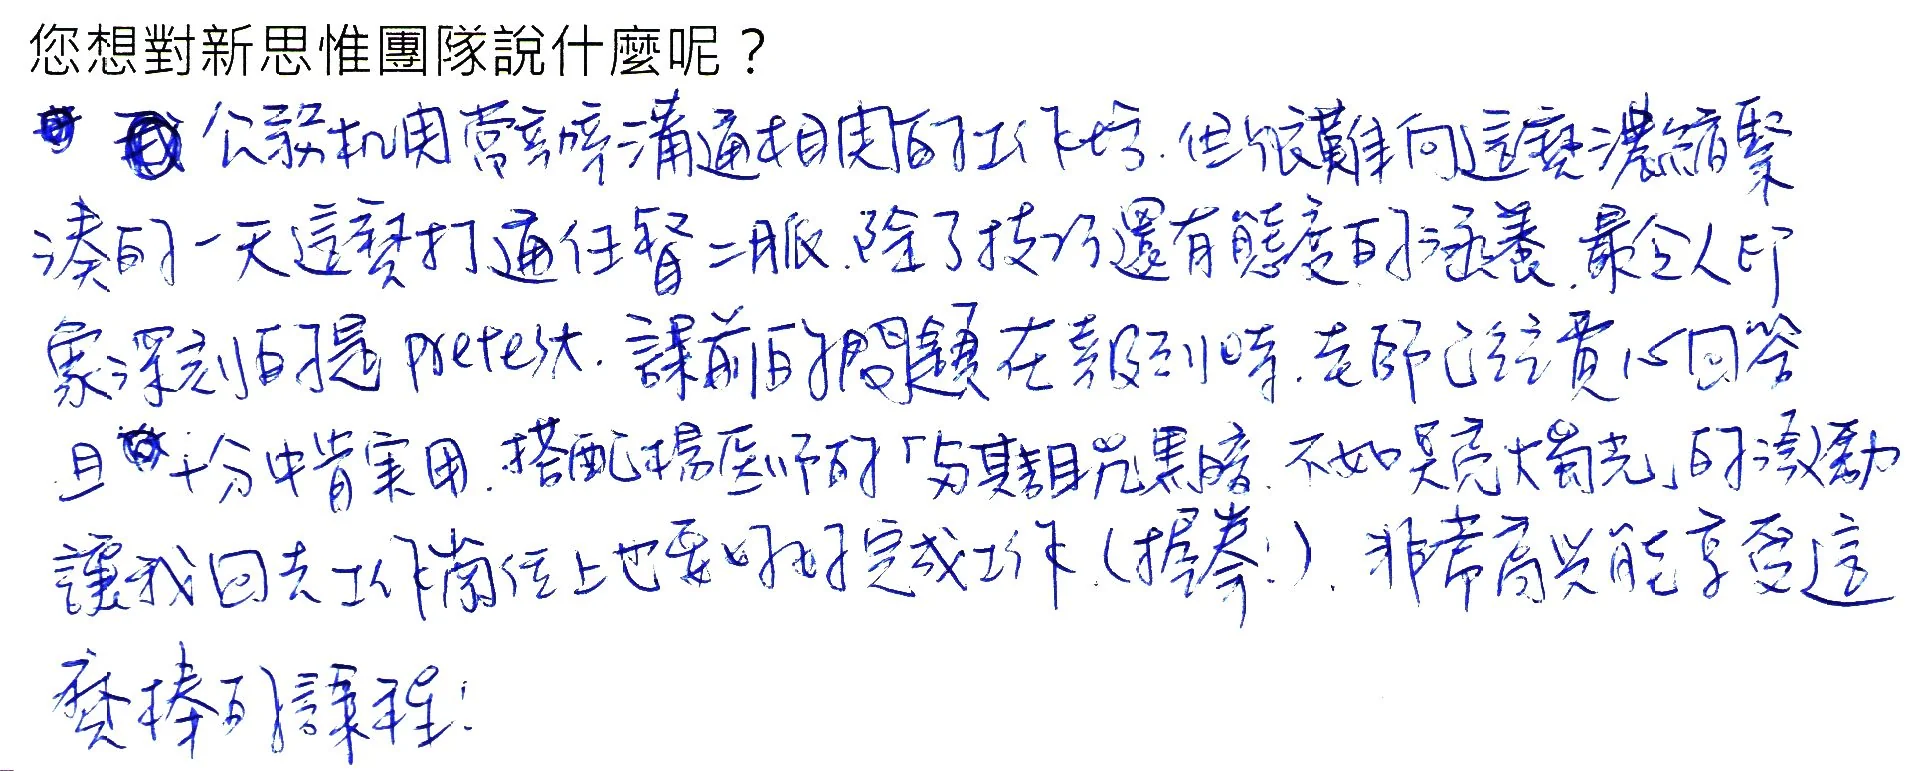 您想對新思惟團隊說什麼呢？
公務机関常辦溝通相関的工作坊.但很難向這麼濃縮緊
湊的一天這麼打通任督二脈.除了技巧還有態度的涵養.最令人印
象深刻的是pretest.課前的問題在報到時.老師已經費心回答
且十分中肯実用.搭配楊医師的「与其詛咒黑暗.不如點亮燭光」的激勵
讓我回去工作崗位上也要好好完成工作(握拳!).非常高兴能享受這
麼棒的課程!